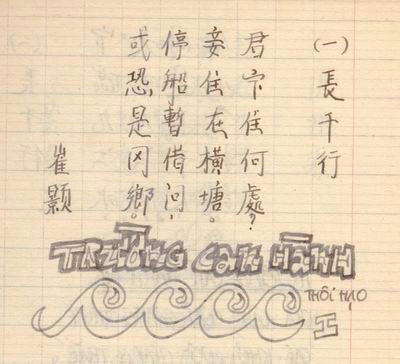 (一) 長干行
君住何處?
妾住在橫塘。
停船暫借問,
或恐是冈鄉。
崔顥
TRƯỜNG CAN HÀNH
THÔI HẠO
I